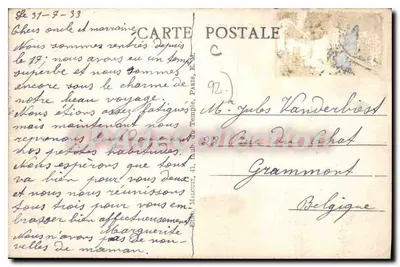 Le 31-7-33
Chers oncle et marraine
Nous sommes rentrés depuis
le 17; nous avons eu un temps
superbe et nous sommes
encore sous le charme de
notre beau voyage.
Nous étions assez fatigués
mais maintenant nous
reprenons
nos petites habitudes.
Nous espérons que tout
va bien pour vous deux
et nous nous réunissons
tous trois pour vous em-
brasser bien affectueusement
Marguerite
Nous n'avons pas de nou-
velles de maman.
CARTE POSTALE
C
92)
Mr Jules Vanderbiest
Rue du Chat
Grammont
Belgique
41, Temple, Paris